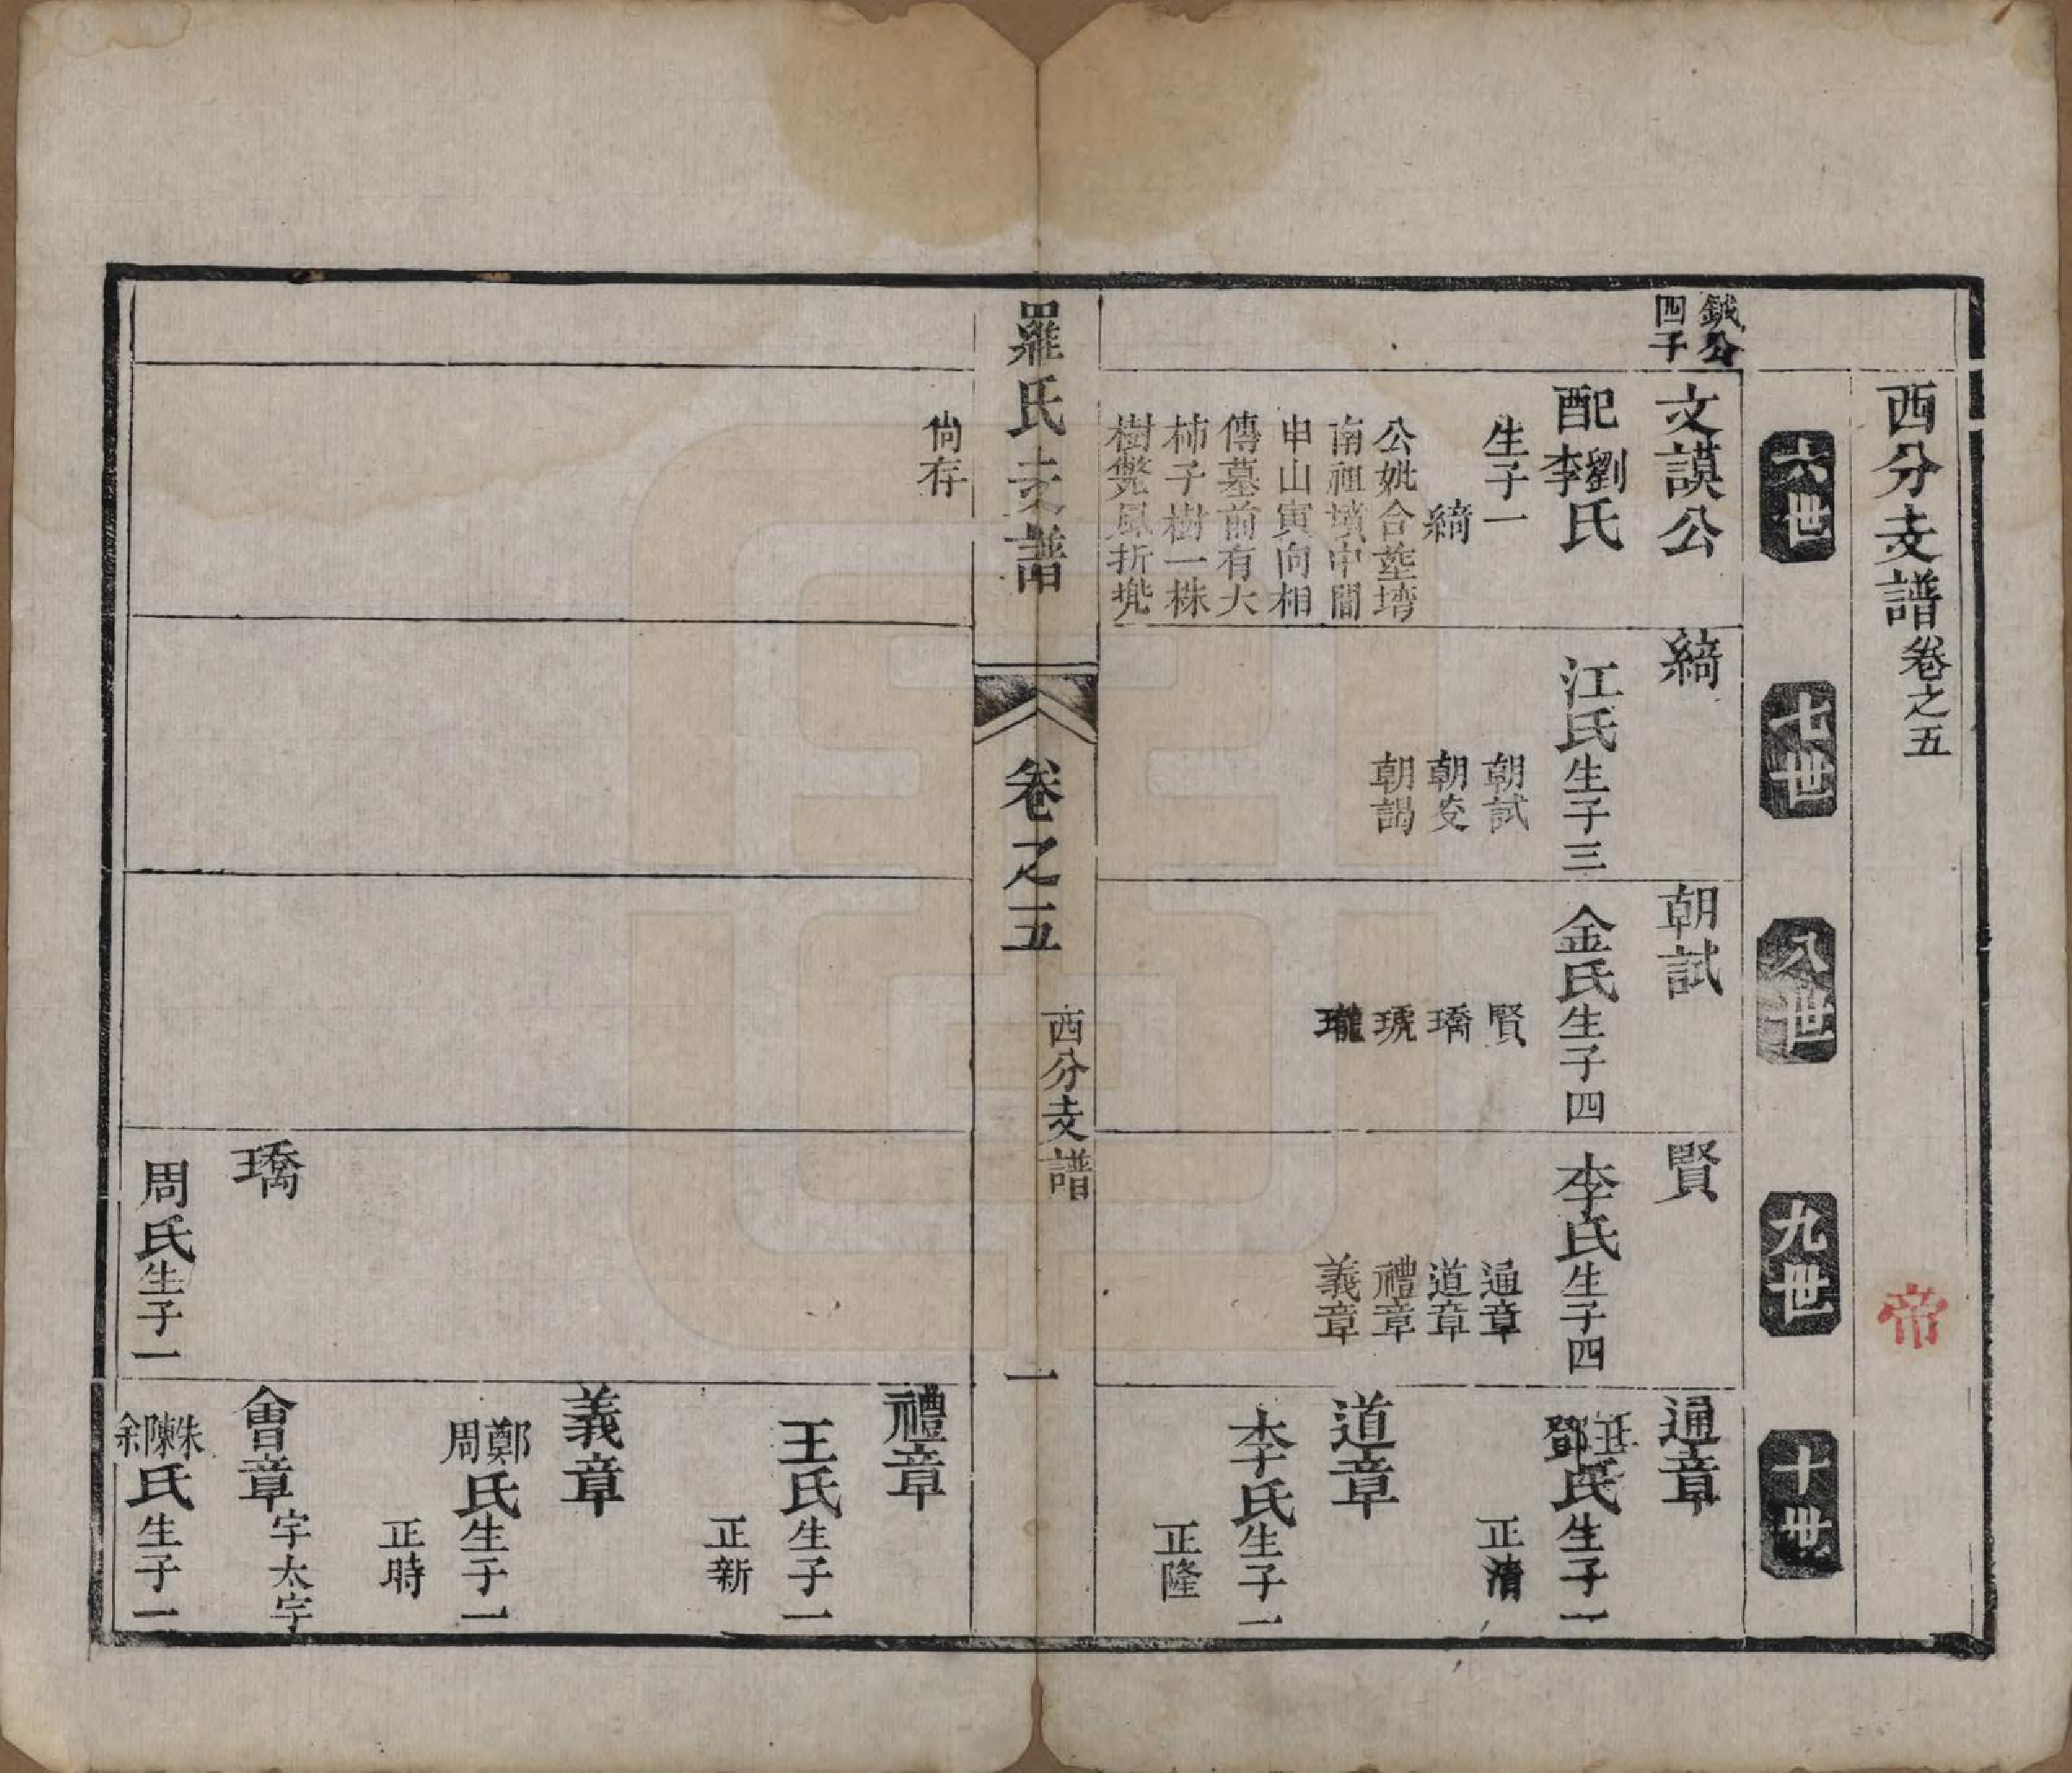 西分支譜卷之五
帝
六世
七世
八世
九世
十世
鉞公
四子
文謨公
配劉李氏
生子一
綺
公妣合塟塆
南祖墳中間
申山寅向相
傳墓前有大
柿子樹一株
樹斃風折
尙存
綺
江氏生子三
朝試
朝
朝謁
朝試
金氏生子四
賢
璚
琥
瓏
賢
李氏生子四
通章
道章
禮章
義章
璚
周氏生子一
通章
鄧氏生子一
正清
道章
李氏生子一
正隆
禮章
王氏生子一
正新
義章
鄭周氏生子一
正時
會章字太宇
朱陳余氏生子一
羅氏支譜
卷之五
西分支譜
一